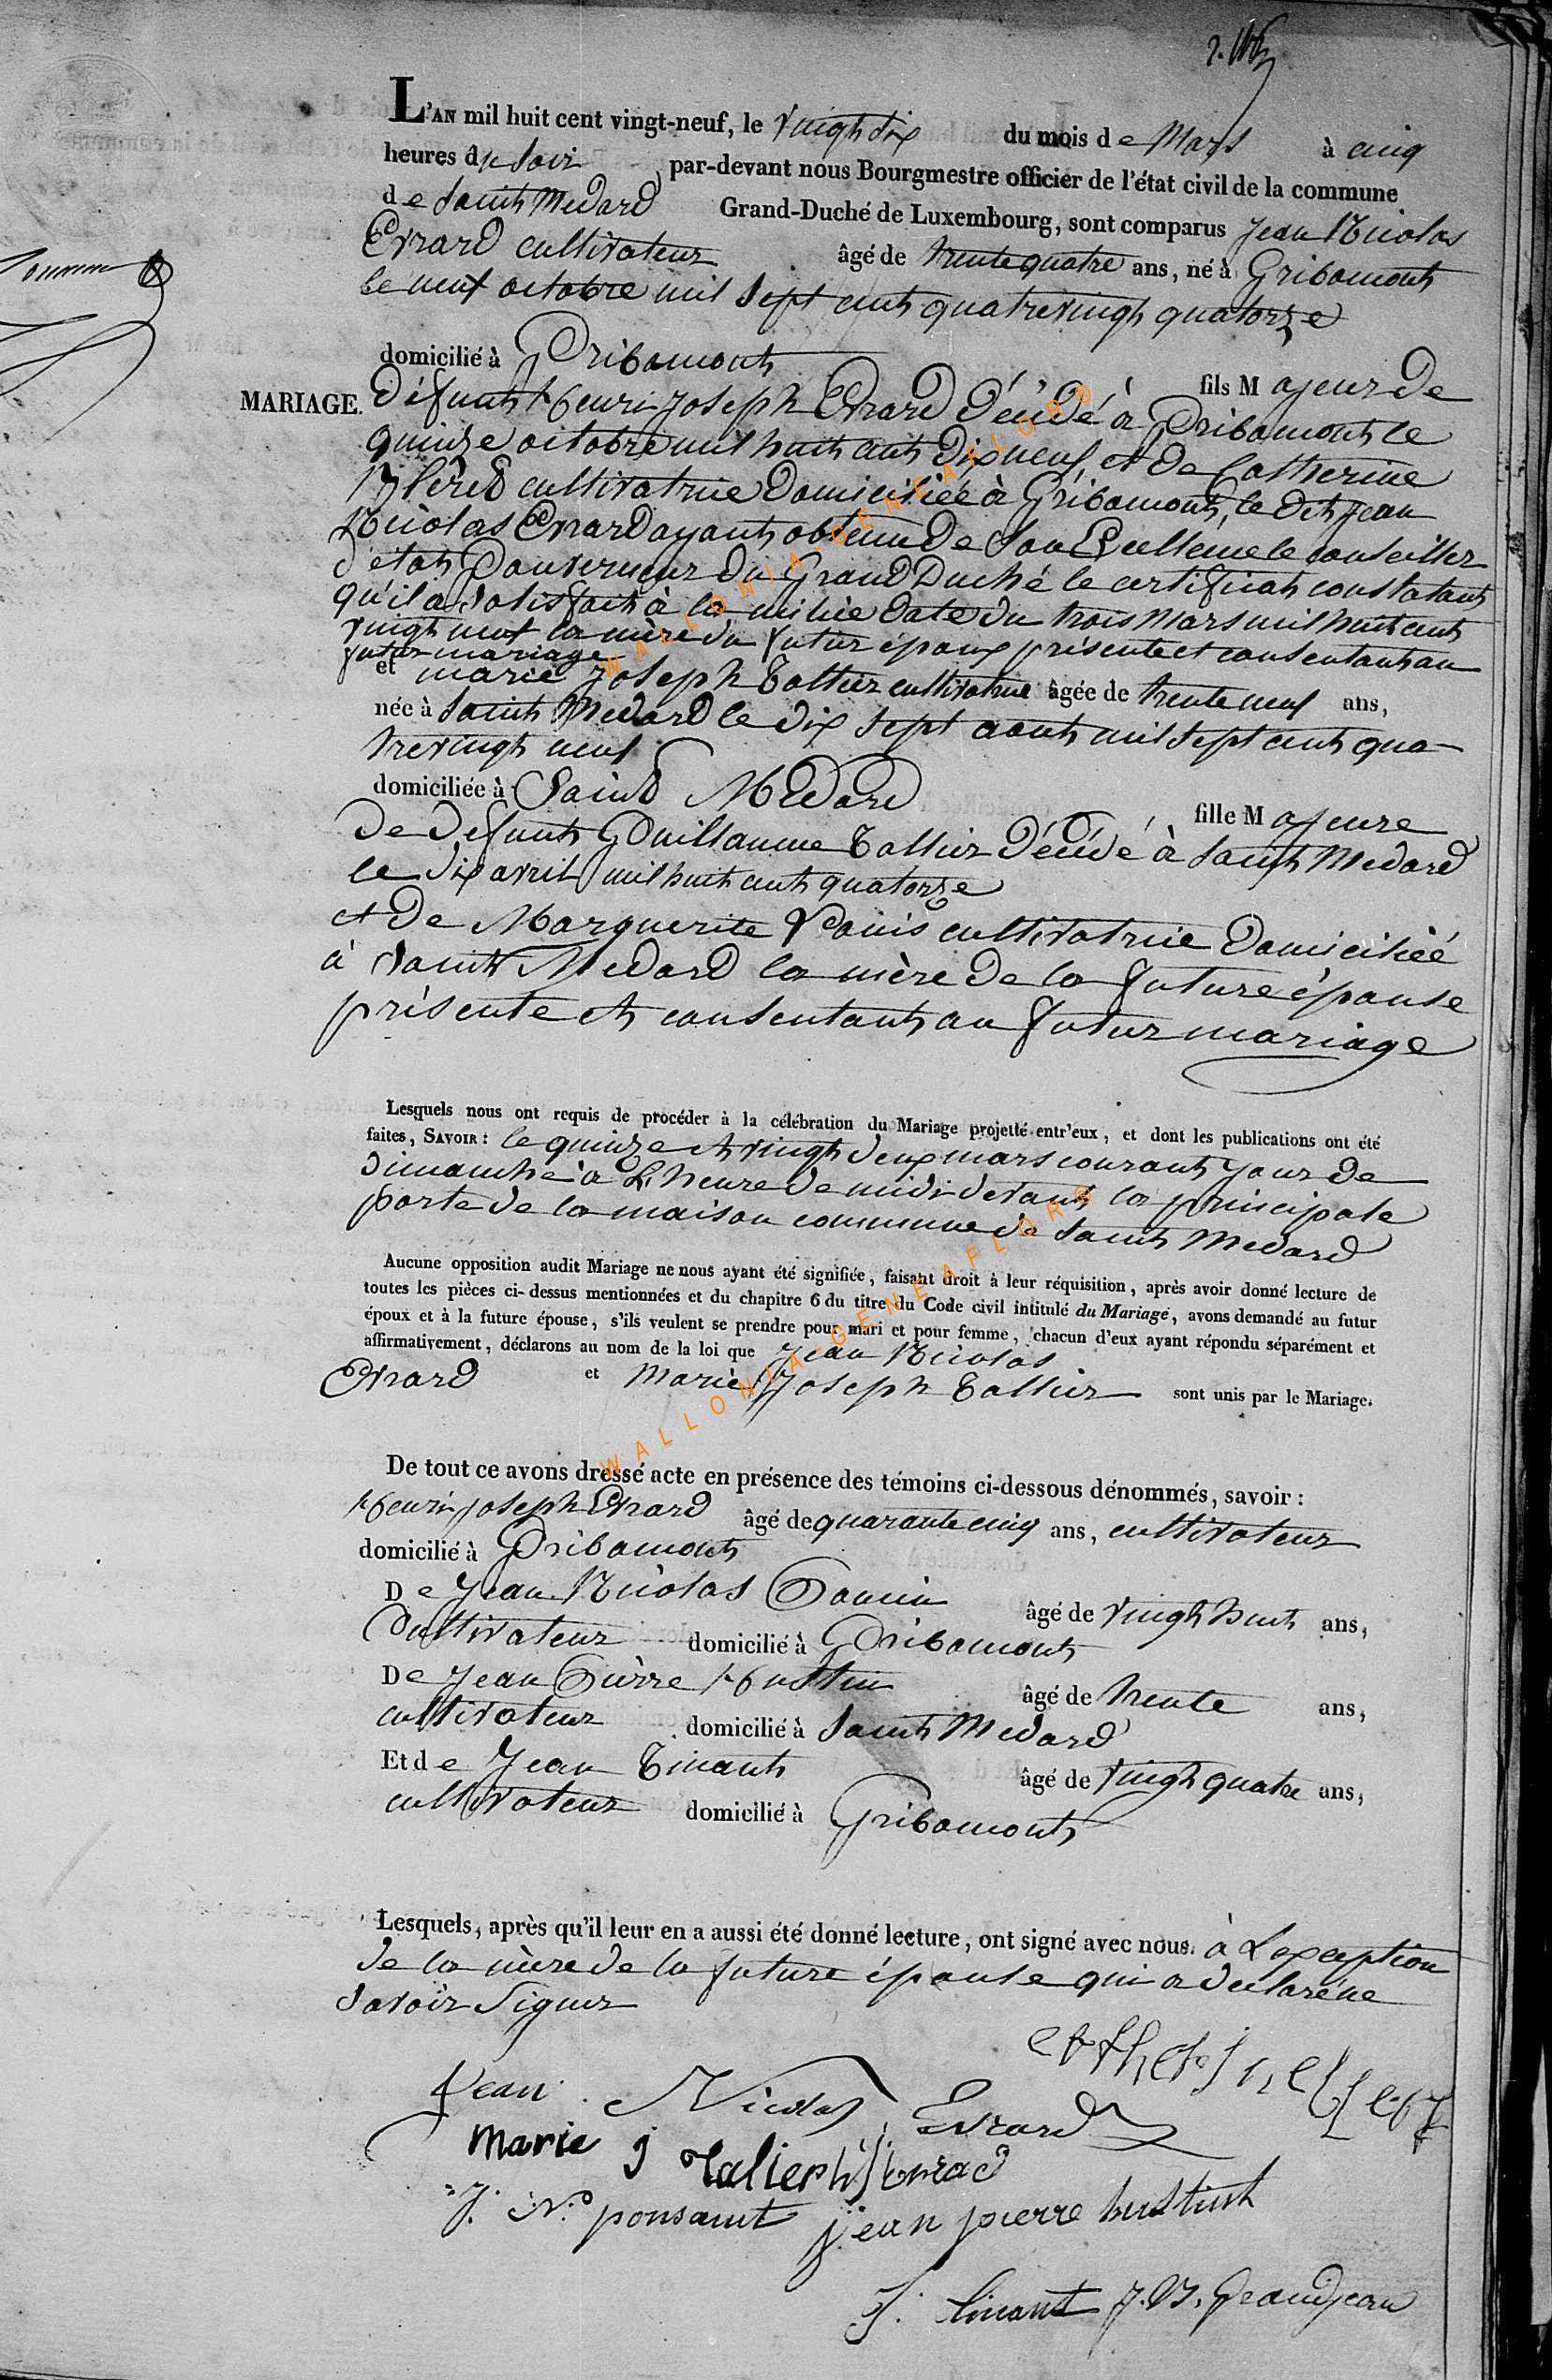 L'AN mil huit cent vingt-neuf, le vingh six du mois de Mars à cinq
heures du soir par-devant nous Bourgmestre officier de l'état civil de la commune
de Sainth Medard Grand-Duché de Luxembourg, sont comparus Jean Nicolas
Evrard cultivateur âgé de trente quatre ans, né à Gribomonth
le neuf octobre mil sept centh quatrevingh quatorze
domicilié à Gribomonth fils Majeur de
MARIAGE. Défunth Henri Joseph Evrard Décédé à Gribomonth le
quinze octobre mil huit centh Dix neuf, et De Catherine
cultivatrice Domiciliéé à Gribomonth, le Dith Jean
Nicolas Evrard ayanth obtenu De Son Excellence le conseiller
d'étath Gouverneur Du Grand Duché le certificath constatanth
qu'il a Satisfaith à la milice Date Du trois Mars mil huit centh
vingh neuf la mère du futur époux présente et consentanth au
futur mariage
et marie Joseph Tallier cultivatrice âgée de trente neuf ans,
née à Sainth Medard le Dix Sept aouth mil sept centh qua-
trevingh neuf
domiciliée à Saint Medard fille Majeure
De Defunth Guillaume Tallier Décédé à Sainth Medard
le Dix avril mil huit centh quatorze
et De Marguerite cultivatrice Domiciliéé
à Sainth Medard la mère De la future épouse
présente eth consentanth au futur mariage
Lesquels nous ont requis de procéder à la célébration du Mariage projetté entr'eux, et dont les publications ont été
faites, SAVOIR : le quinze eth vingh Deux mars couranth Jour De
Dimanche à L'heure De midi Devanth la principale
porte De la maison commune De Sainth Medard
Aucune opposition audit Mariage ne nous ayant été signifiée, faisant droit à leur réquisition, après avoir donné lecture de
toutes les pièces ci-dessus mentionnées et du chapitre 6 du titre du Code civil intitulé du Mariage, avons demandé au futur
époux et à la future épouse, s'ils veulent se prendre pour mari et pour femme, chacun d'eux ayant répondu séparément et
affirmativement, déclarons au nom de la loi que Jean Nicolas
Evrard et Marie Joseph Tallier sont unis par le Mariage.
De tout ce avons dressé acte en présence des témoins ci-dessous dénommés, savoir :
Henri Joseph Evrard âgé de quarante cinq ans, cultivateur
domicilié à Gribomonth
De Jean Nicolas âgé de vingh huit ans,
Cultivateur domicilié à Gribomonth
De Jean Pierre Hustin âgé de trente ans,
cultivateur domicilié à Sainth Medard
Et de Jean Tinanth âgé de vingh quatre ans,
cultivateur domicilié à Gribomonth
Lesquels, après qu'il leur en a aussi été donné lecture, ont signé avec nous. à L'exception
De la mère De la future épouse qui a Declaré ne
Savoir Signer
Jean Nicolas Evrard
marie j talier h j Evrard
J. N. ponsaint jean pierre hustint
J. tinant J. B. Grandjean
WALLONIA-GENEAFLOR®
WALLONIA-GENEAFLOR®